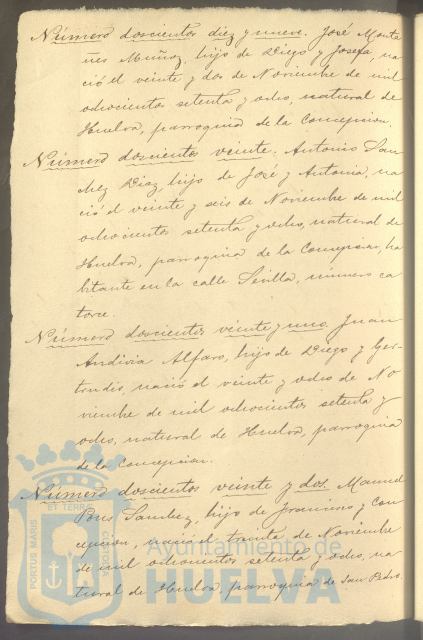 Número doscientos diez y nueve. José Monta
ñes Muñoz, hijo de Diego y Josefa, na-
ció el veinte y dos de Noviembre de mil
ochocientos setenta y ocho, natural de
Huelva, parroquia de la Concepcion.
Número doscientos veinte. Antonio San
chez Diaz, hijo de José y Antonia, na
ció el veinte y seis de Noviembre de mil
ochocientos setenta y ocho, natural de
Huelva, parroquia de la Concepcion, ha
bitante en la calle Sevilla, número ca
torce.
Número doscientos veinte y uno. Juan
Andivia Alfaro, hijo de Diego y Ger-
trudis, nació el veinte y ocho de No
viembre de mil ochocientos setenta y
ocho, natural de Huelva, parroquia
de la Concepcion.
Número doscientos veinte y dos. Manuel
Pons Sanchez, hijo de Francisco y Con
cepcion, nació el treinta de Noviembre
de mil ochocientos setenta y ocho, na
tural de Huelva, parroquia de San Pedro.
PORTUS MARIS ET TERRAE CUSTODIA
Ayuntamiento de
HUELVA